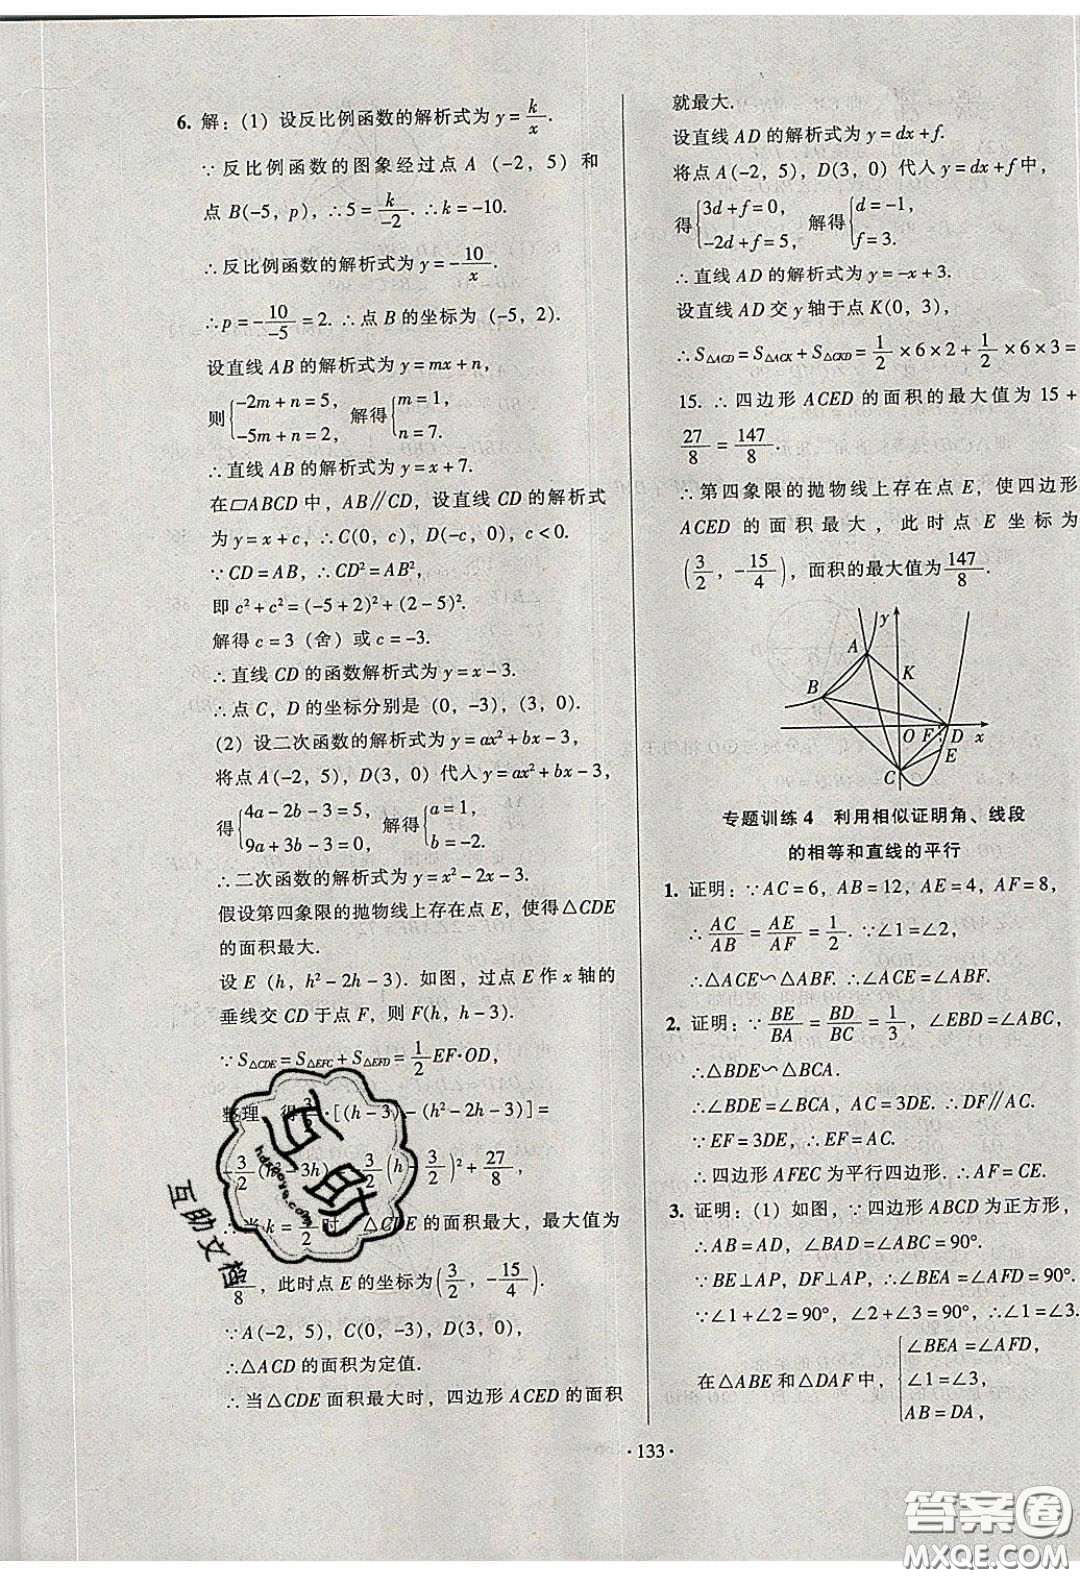 6. 解：(1) 设反比例函数的解析式为 y = k/x.
∵ 反比例函数的图象经过点 A (-2, 5) 和
点 B(-5, p), ∴ 5 = k/-2. ∴ k = -10.
∴ 反比例函数的解析式为 y = -10/x.
∴ p = -10/-5 = 2. ∴ 点 B 的坐标为 (-5, 2).
设直线 AB 的解析式为 y = mx + n,
则 { -2m + n = 5, -5m + n = 2, 解得 { m = 1, n = 7.
∴ 直线 AB 的解析式为 y = x + 7.
在 ▱ABCD 中, AB∥CD, 设直线 CD 的解析式
为 y = x + c, ∴ C(0, c), D(-c, 0), c < 0.
∵ CD = AB, ∴ CD² = AB²,
即 c² + c² = (-5 + 2)² + (2 - 5)².
解得 c = 3 (舍) 或 c = -3.
∴ 直线 CD 的函数解析式为 y = x - 3.
∴ 点 C, D 的坐标分别是 (0, -3), (3, 0).
(2) 设二次函数的解析式为 y = ax² + bx - 3,
将点 A(-2, 5), D(3, 0) 代入 y = ax² + bx - 3,
得 { 4a - 2b - 3 = 5, 9a + 3b - 3 = 0, 解得 { a = 1, b = -2.
∴ 二次函数的解析式为 y = x² - 2x - 3.
假设第四象限的抛物线上存在点 E, 使得 △CDE
的面积最大.
设 E (h, h² - 2h - 3). 如图, 过点 E 作 x 轴的
垂线交 CD 于点 F, 则 F(h, h - 3).
∵ S△CDE = S△EFC + S△EFD = 1/2 EF·OD,
整理 得 3/2 · [(h - 3) - (h² - 2h - 3)] =
-3/2 (h² - 3h) 3/2 (h - 3/2)² + 27/8,
∴ 当 k = 3/2 时, △CDE 的面积最大, 最大值为
/8, 此时点 E 的坐标为 (3/2, -15/4).
∵ A(-2, 5), C(0, -3), D(3, 0),
∴ △ACD 的面积为定值.
∴ 当 △CDE 面积最大时, 四边形 ACED 的面积
就最大.
设直线 AD 的解析式为 y = dx + f.
将点 A(-2, 5), D(3, 0) 代入 y = dx + f 中,
得 { 3d + f = 0, -2d + f = 5, 解得 { d = -1, f = 3.
∴ 直线 AD 的解析式为 y = -x + 3.
设直线 AD 交 y 轴于点 K(0, 3),
∴ S△ACD = S△ACK + S△CKD = 1/2 × 6 × 2 + 1/2 × 6 × 3 =
15. ∴ 四边形 ACED 的面积的最大值为 15 +
27/8 = 147/8.
∴ 第四象限的抛物线上存在点 E, 使四边形
ACED 的面积最大, 此时点 E 坐标为
(3/2, -15/4), 面积的最大值为 147/8.
y
A
K
B
O F D x
E
C
专题训练 4 利用相似证明角、线段
的相等和直线的平行
1. 证明：∵ AC = 6, AB = 12, AE = 4, AF = 8,
∴ AC/AB = AE/AF = 1/2. ∵ ∠1 = ∠2,
∴ △ACE∽△ABF. ∴ ∠ACE = ∠ABF.
2. 证明：∵ BE/BA = BD/BC = 1/3, ∠EBD = ∠ABC,
∴ △BDE∽△BCA.
∴ ∠BDE = ∠BCA, AC = 3DE. ∴ DF∥AC.
∵ EF = 3DE, ∴ EF = AC.
∴ 四边形 AFEC 为平行四边形. ∴ AF = CE.
3. 证明：(1) 如图, ∵ 四边形 ABCD 为正方形,
∴ AB = AD, ∠BAD = ∠ABC = 90°.
∵ BE⊥AP, DF⊥AP, ∴ ∠BEA = ∠AFD = 90°.
∵ ∠1 + ∠2 = 90°, ∠2 + ∠3 = 90°, ∴ ∠1 = ∠3.
在 △ABE 和 △DAF 中, { ∠BEA = ∠AFD, ∠1 = ∠3, AB = DA,
· 133 ·
互助
hdzuoye.com
互助文档
答案圈
MXQE.COM